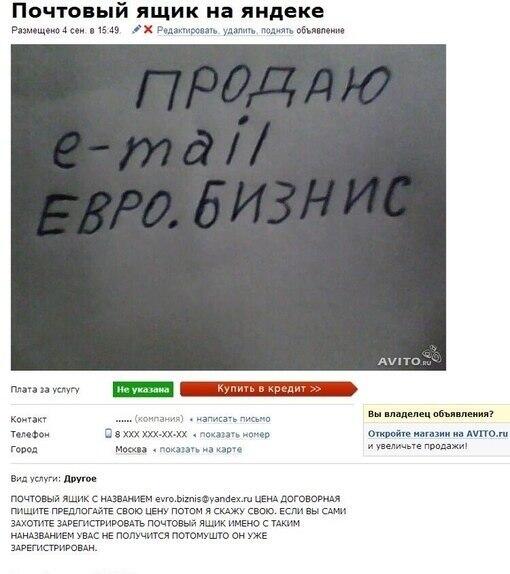 Почтовый ящик на яндеке
Размещено 4 сен. в 15:49. Редактировать, удалить, поднять объявление
ПРОДАЮ
e-mail
ЕВРО.БИЗНИС
AVITO.ru
Плата за услугу Не указана Купить в кредит >>
Контакт ...... (компания) написать письмо
Телефон 8 XXX XXX-XX-XX показать номер
Город Москва показать на карте
Вы владелец объявления?
Откройте магазин на AVITO.ru
и увеличьте продажи!
Вид услуги: Другое
ПОЧТОВЫЙ ЯЩИК С НАЗВАНИЕМ evro.biznis@yandex.ru ЦЕНА ДОГОВОРНАЯ
ПИЩИТЕ ПРЕДЛОГАЙТЕ СВОЮ ЦЕНУ ПОТОМ Я СКАЖУ СВОЮ. ЕСЛИ ВЫ САМИ
ЗАХОТИТЕ ЗАРЕГИСТРИРОВАТЬ ПОЧТОВЫЙ ЯЩИК ИМЕНО С ТАКИМ
НАНАЗВАНИЕМ УВАС НЕ ПОЛУЧИТСЯ ПОТОМУШТО ОН УЖЕ
ЗАРЕГИСТРИРОВАН.